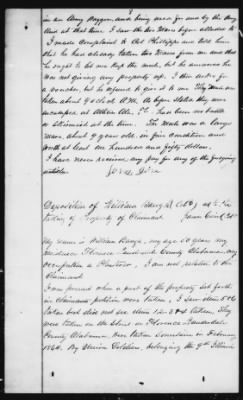 in an Army wagon and being used for and by the Army
at that time. I saw the two Mares before alluded to
I made complaint to Col Phillipps and told him
that he had already taken two teams from me and that
he ought to let me keep the mule, but he answered he
was not giving any property up. I then asked for
a voucher, but he refused to give it to me. They were
taken about 9 o'clock A.M. As before stated they were
encamped at Athens Ala. There had been no battle
or skirmish at the time. The mule was a large
mare, about 9 years old, in fine condition and
worth at least one hundred and fifty dollars.
I have never received any pay for any of the foregoing
articles.
Deposition of William
taking of Property of Claimant
My name is William my age 50 years my
residence Florence Lauderdale County Alabama my
occupation a Planter, I am not related to the
Claimant
I was present when a part of the property set forth
in claimants petition were taken, I saw items
taken but did not see items taken. They
were taken on the in Florence Lauderdale
County Alabama, were taken sometime in February
1864. By Union Soldiers, belonging the 9th Illinois